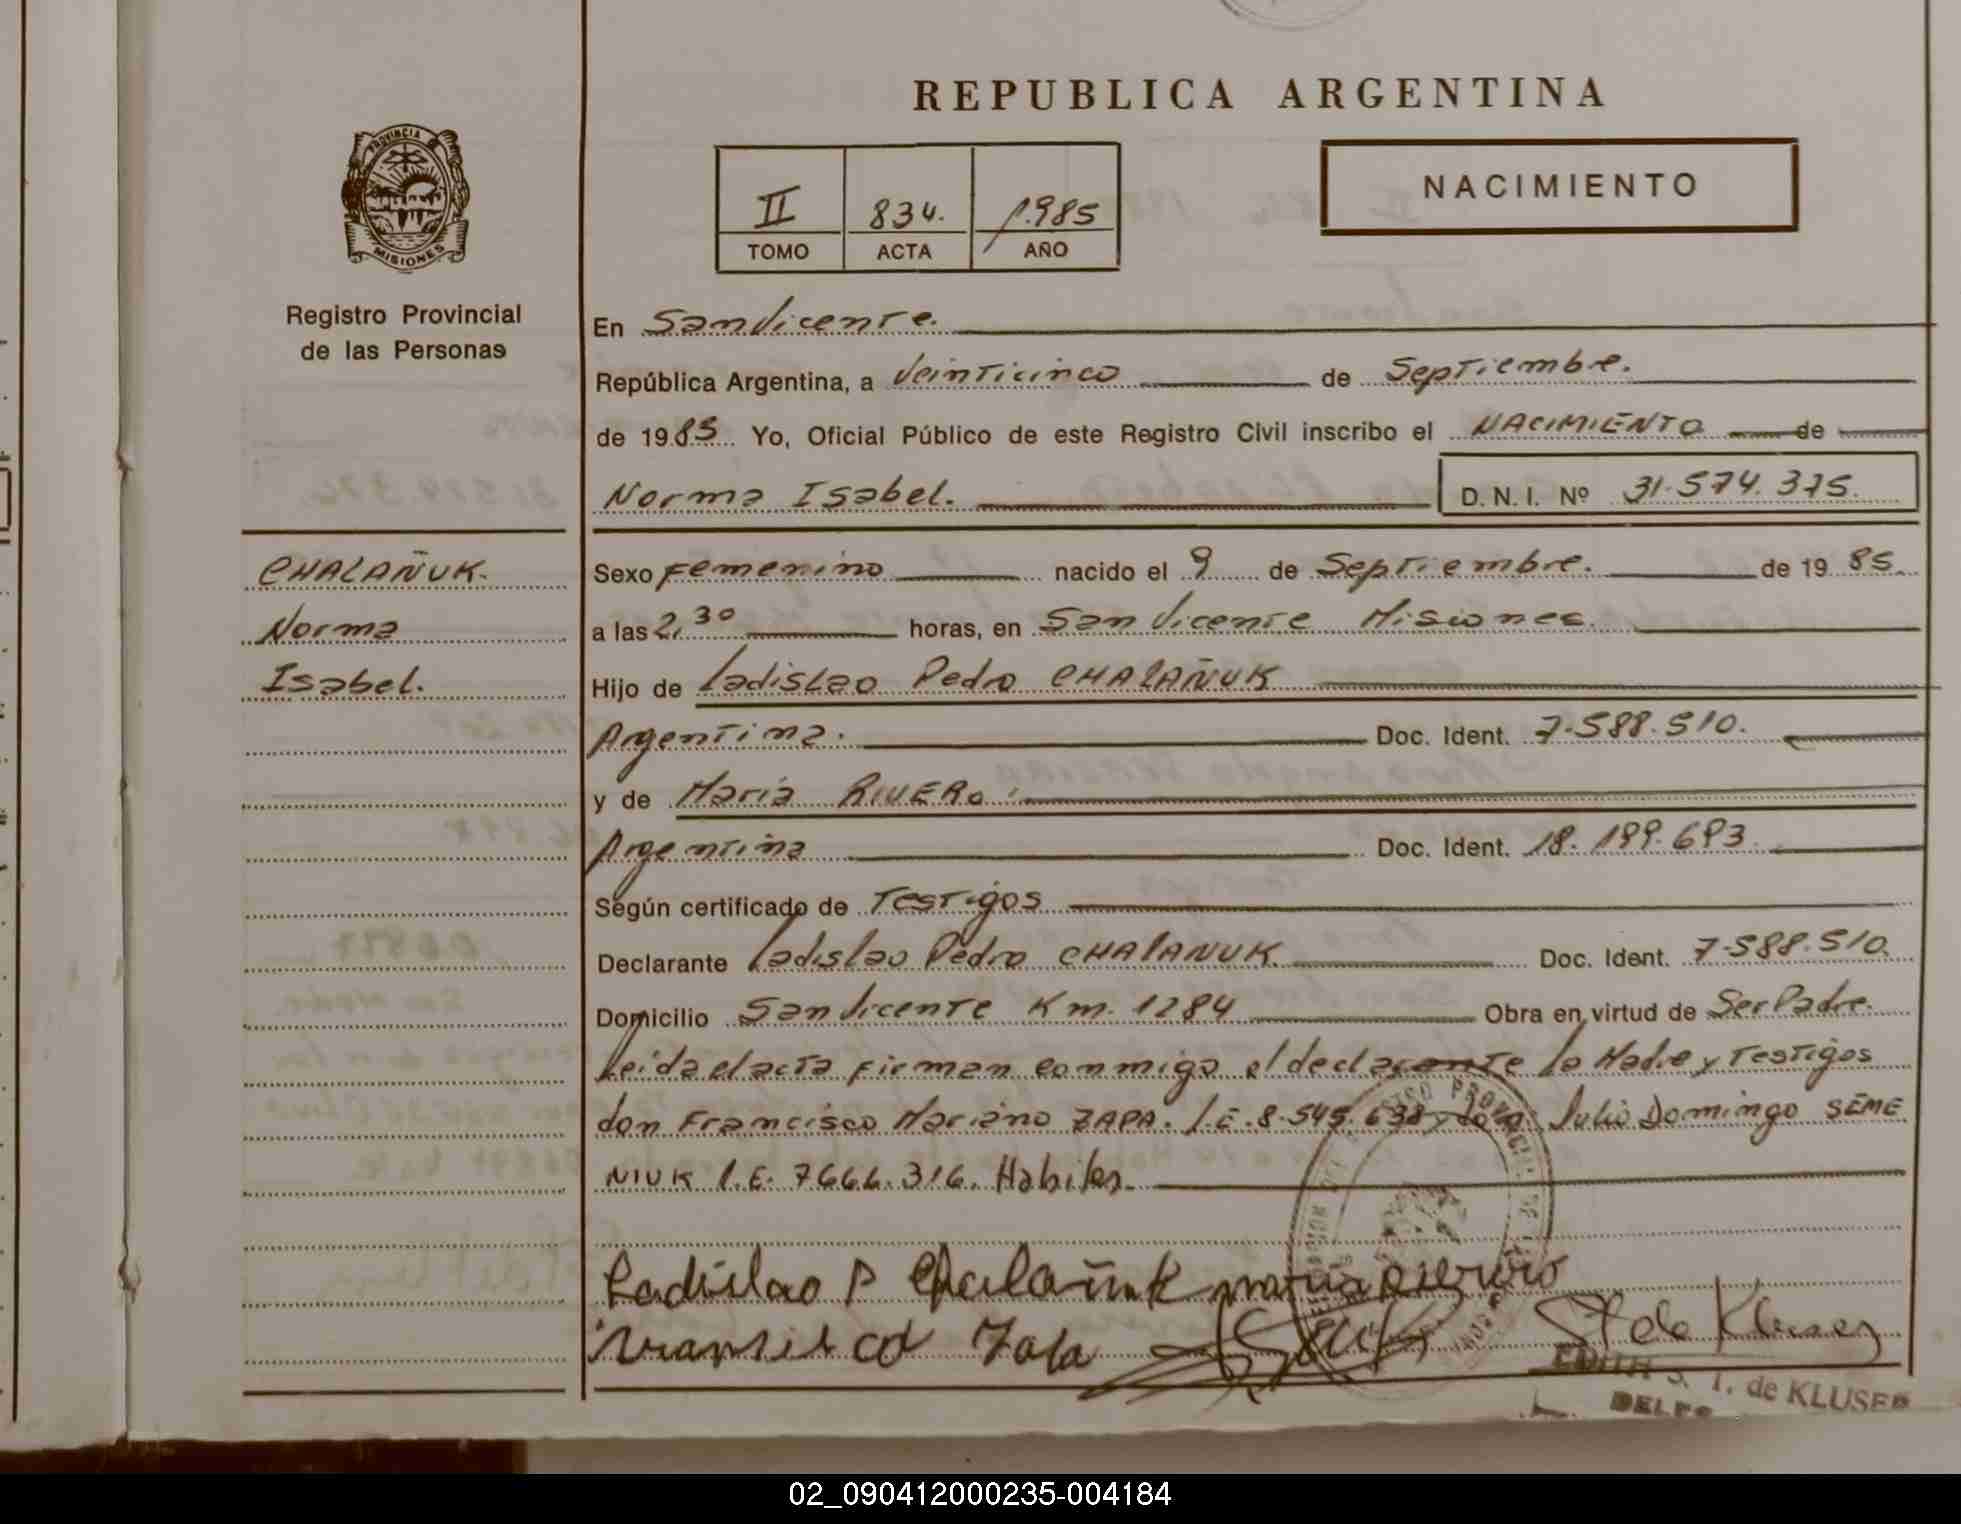 REPUBLICA ARGENTINA
PROVINCIA
MISIONES
Registro Provincial
de las Personas
II 834. 1.985
TOMO ACTA AÑO
NACIMIENTO
En San Vicente.
República Argentina, a Veinticinco de Septiembre.
de 1985 Yo, Oficial Público de este Registro Civil inscribo el NACIMIENTO de
Norma Isabel. D. N. I. Nº 31.574.375.
CHALAÑUK.
Norma
Isabel.
Sexo Femenino nacido el 9 de Septiembre. de 1985.
a las 2,30 horas, en San Vicente Misiones.
Hijo de Ladislao Pedro CHALAÑUK
Argentina. Doc. Ident. 7.588.510.
y de María RIVERO.
Argentina Doc. Ident. 18.199.693.
Según certificado de Testigos
Declarante Ladislao Pedro CHALAÑUK. Doc. Ident. 7.588.510.
Domicilio San Vicente Km. 1284 Obra en virtud de Ser Padre.
Leida el acta firman conmigo el declarante la Madre y Testigos
don Francisco Mariano ZAPA. L.E. 8.545.638 y don Julio Domingo SEME
NIUK L.E. 7666.316. Habiles.
Ladislao P Chalañuk maria rivero
St de Kluser
EDITH S. T. de KLUSER
02_090412000235-004184